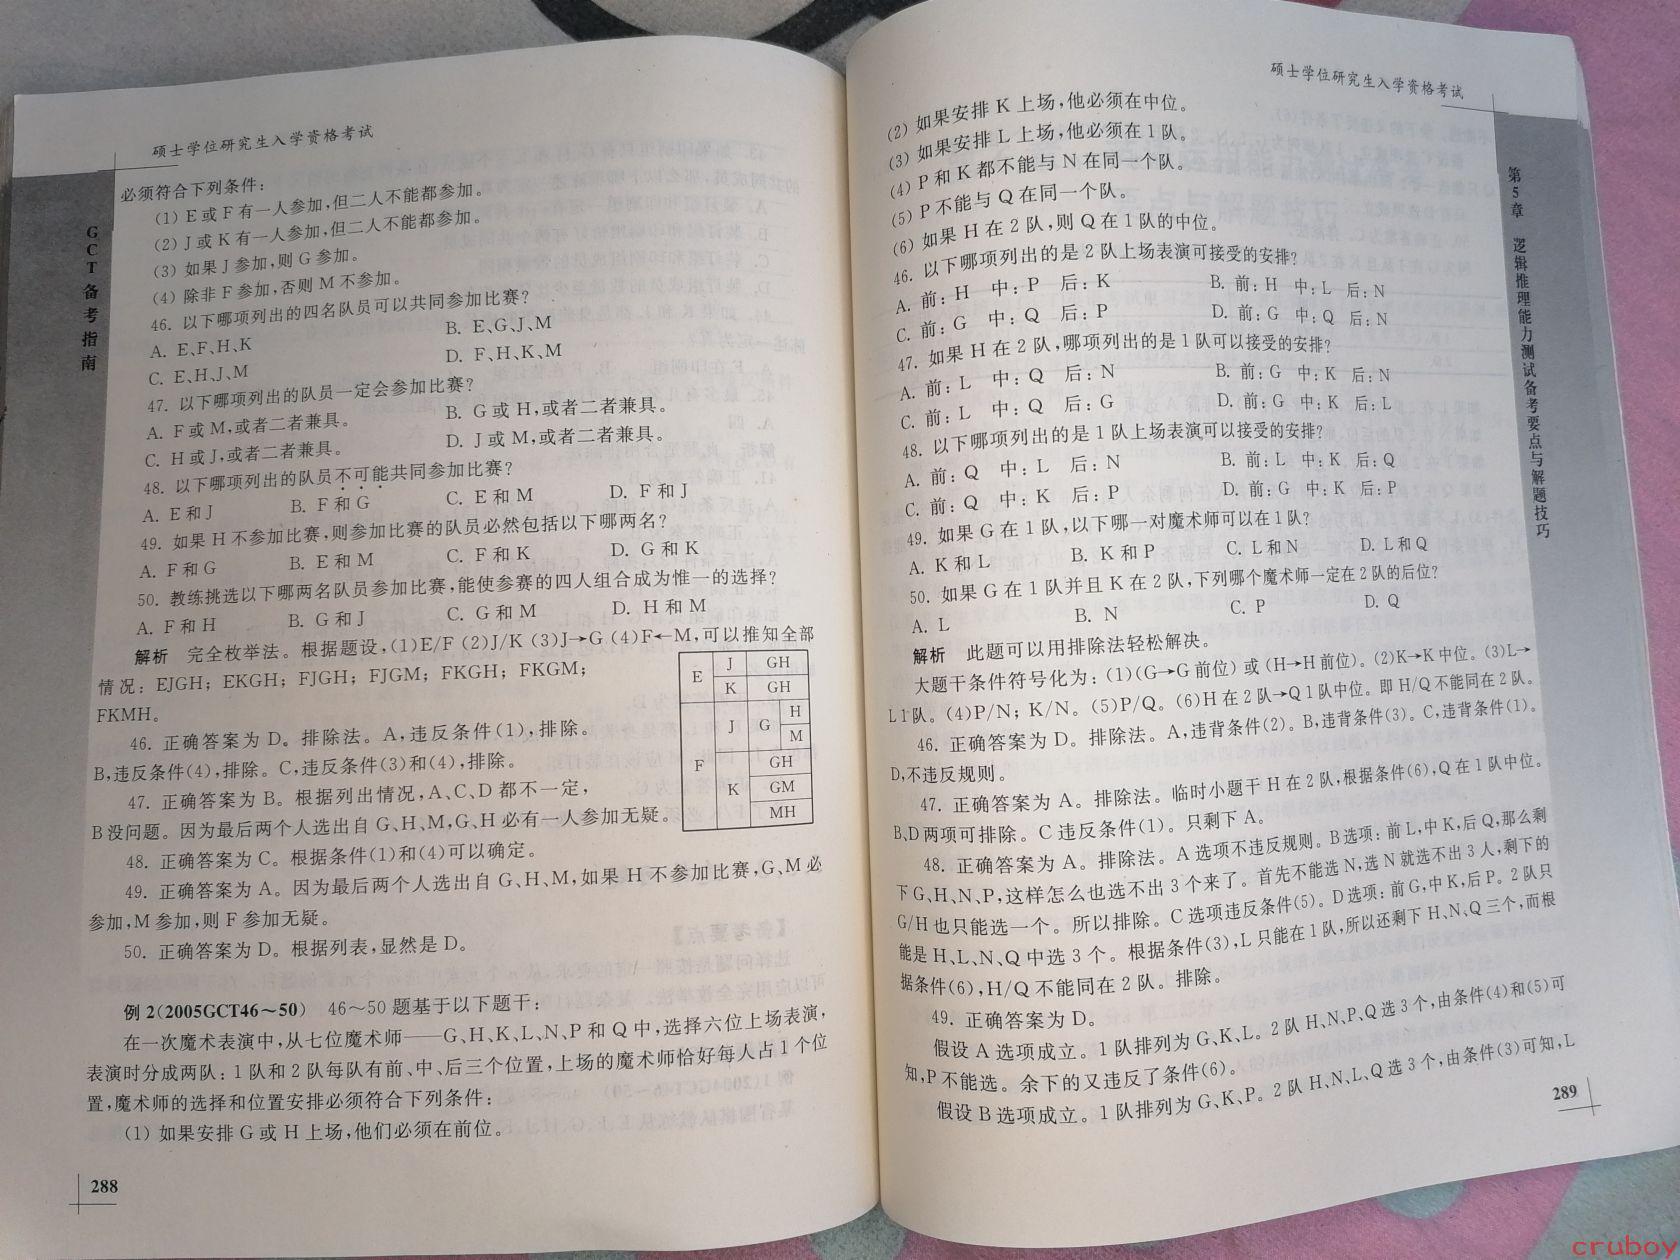 硕士学位研究生入学资格考试
GCT备考指南
必须符合下列条件:
(1) E或F有一人参加,但二人不能都参加。
(2) J或K有一人参加,但二人不能都参加。
(3) 如果J参加,则G参加。
(4) 除非F参加,否则M不参加。
46. 以下哪项列出的四名队员可以共同参加比赛?
A. E、F、H、K B. E、G、J、M
C. E、H、J、M D. F、H、K、M
47. 以下哪项列出的队员一定会参加比赛?
A. F或M,或者二者兼具。 B. G或H,或者二者兼具。
C. H或J,或者二者兼具。 D. J或M,或者二者兼具。
48. 以下哪项列出的队员不可能共同参加比赛?
A. E和J B. F和G C. E和M D. F和J
49. 如果H不参加比赛,则参加比赛的队员必然包括以下哪两名?
A. F和G B. E和M C. F和K D. G和K
50. 教练挑选以下哪两名队员参加比赛,能使参赛的四人组合成为惟一的选择?
A. F和H B. G和J C. G和M D. H和M
解析 完全枚举法。根据题设,(1)E/F (2)J/K (3)J→G (4)F←M,可以推知全部
情况:EJGH; EKGH; FJGH; FJGM; FKGH; FKGM;
FKMH。
E J GH
K GH
F J G H
M
K GH
GM
MH
46. 正确答案为D。排除法。A,违反条件(1),排除。
B,违反条件(4),排除。C,违反条件(3)和(4),排除。
47. 正确答案为B。根据列出情况,A、C、D都不一定,
B没问题。因为最后两个人选出自G、H、M,G、H必有一人参加无疑。
48. 正确答案为C。根据条件(1)和(4)可以确定。
49. 正确答案为A。因为最后两个人选出自G、H、M,如果H不参加比赛,G、M必
参加,M参加,则F参加无疑。
50. 正确答案为D。根据列表,显然是D。
例2(2005GCT46～50) 46～50题基于以下题干:
在一次魔术表演中,从七位魔术师——G、H、K、L、N、P和Q中,选择六位上场表演,
表演时分成两队:1队和2队每队有前、中、后三个位置,上场的魔术师恰好每人占1个位
置,魔术师的选择和位置安排必须符合下列条件:
(1) 如果安排G或H上场,他们必须在前位。
288
硕士学位研究生入学资格考试
第5章 逻辑推理能力测试备考要点与解题技巧
(2) 如果安排K上场,他必须在中位。
(3) 如果安排L上场,他必须在1队。
(4) P和K都不能与N在同一个队。
(5) P不能与Q在同一个队。
(6) 如果H在2队,则Q在1队的中位。
46. 以下哪项列出的是2队上场表演可接受的安排?
A. 前:H 中:P 后:K B. 前:H 中:L 后:N
C. 前:G 中:Q 后:P D. 前:G 中:Q 后:N
47. 如果H在2队,哪项列出的是1队可以接受的安排?
A. 前:L 中:Q 后:N B. 前:G 中:K 后:N
C. 前:L 中:Q 后:G D. 前:G 中:K 后:L
48. 以下哪项列出的是1队上场表演可以接受的安排?
A. 前:Q 中:L 后:N B. 前:L 中:K 后:Q
C. 前:Q 中:K 后:P D. 前:G 中:K 后:P
49. 如果G在1队,以下哪一对魔术师可以在1队?
A. K和L B. K和P C. L和N D. L和Q
50. 如果G在1队并且K在2队,下列哪个魔术师一定在2队的后位?
A. L B. N C. P D. Q
解析 此题可以用排除法轻松解决。
大题干条件符号化为:(1)(G→G前位)或(H→H前位)。(2)K→K中位。(3)L→
L1队。(4)P/N; K/N。(5)P/Q。(6)H在2队→Q1队中位。即H/Q不能同在2队。
46. 正确答案为D。排除法。A,违背条件(2)。B,违背条件(3)。C,违背条件(1)。
D,不违反规则。
47. 正确答案为A。排除法。临时小题干H在2队,根据条件(6),Q在1队中位。
B、D两项可排除。C违反条件(1)。只剩下A。
48. 正确答案为A。排除法。A选项不违反规则。B选项:前L,中K,后Q,那么剩
下G、H、N、P,这样怎么也选不出3个来了。首先不能选N,选N就选不出3人,剩下的
G/H也只能选一个。所以排除。C选项违反条件(5)。D选项:前G,中K,后P。2队只
能是H、L、N、Q中选3个。根据条件(3),L只能在1队,所以还剩下H、N、Q三个,而根
据条件(6),H/Q不能同在2队。排除。
49. 正确答案为D。
假设A选项成立。1队排列为G、K、L。2队H、N、P、Q选3个,由条件(4)和(5)可
知,P不能选。余下的又违反了条件(6)。
假设B选项成立。1队排列为G、K、P。2队H、N、L、Q选3个,由条件(3)可知,L
289
cruboy